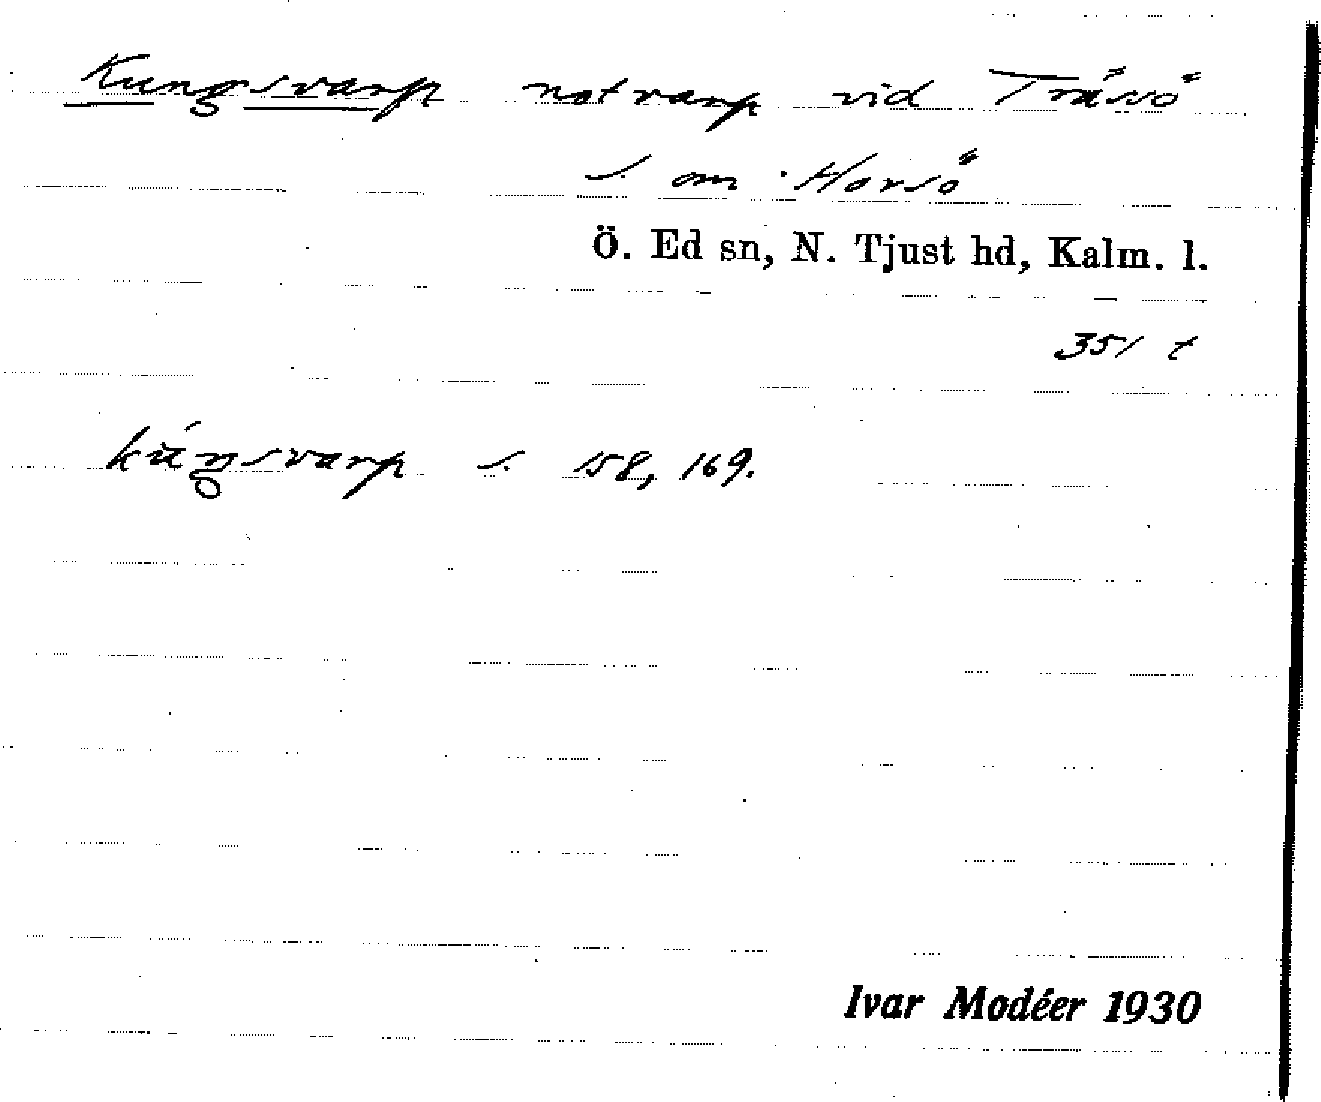 Kungsvarp notvarp vid Träsö
S. om Horsö
Ö. Ed sn, N. Tjust hd, Kalm. l.
351 t
kúŋsvarp s. 158, 169.
Ivar Modéer 1930